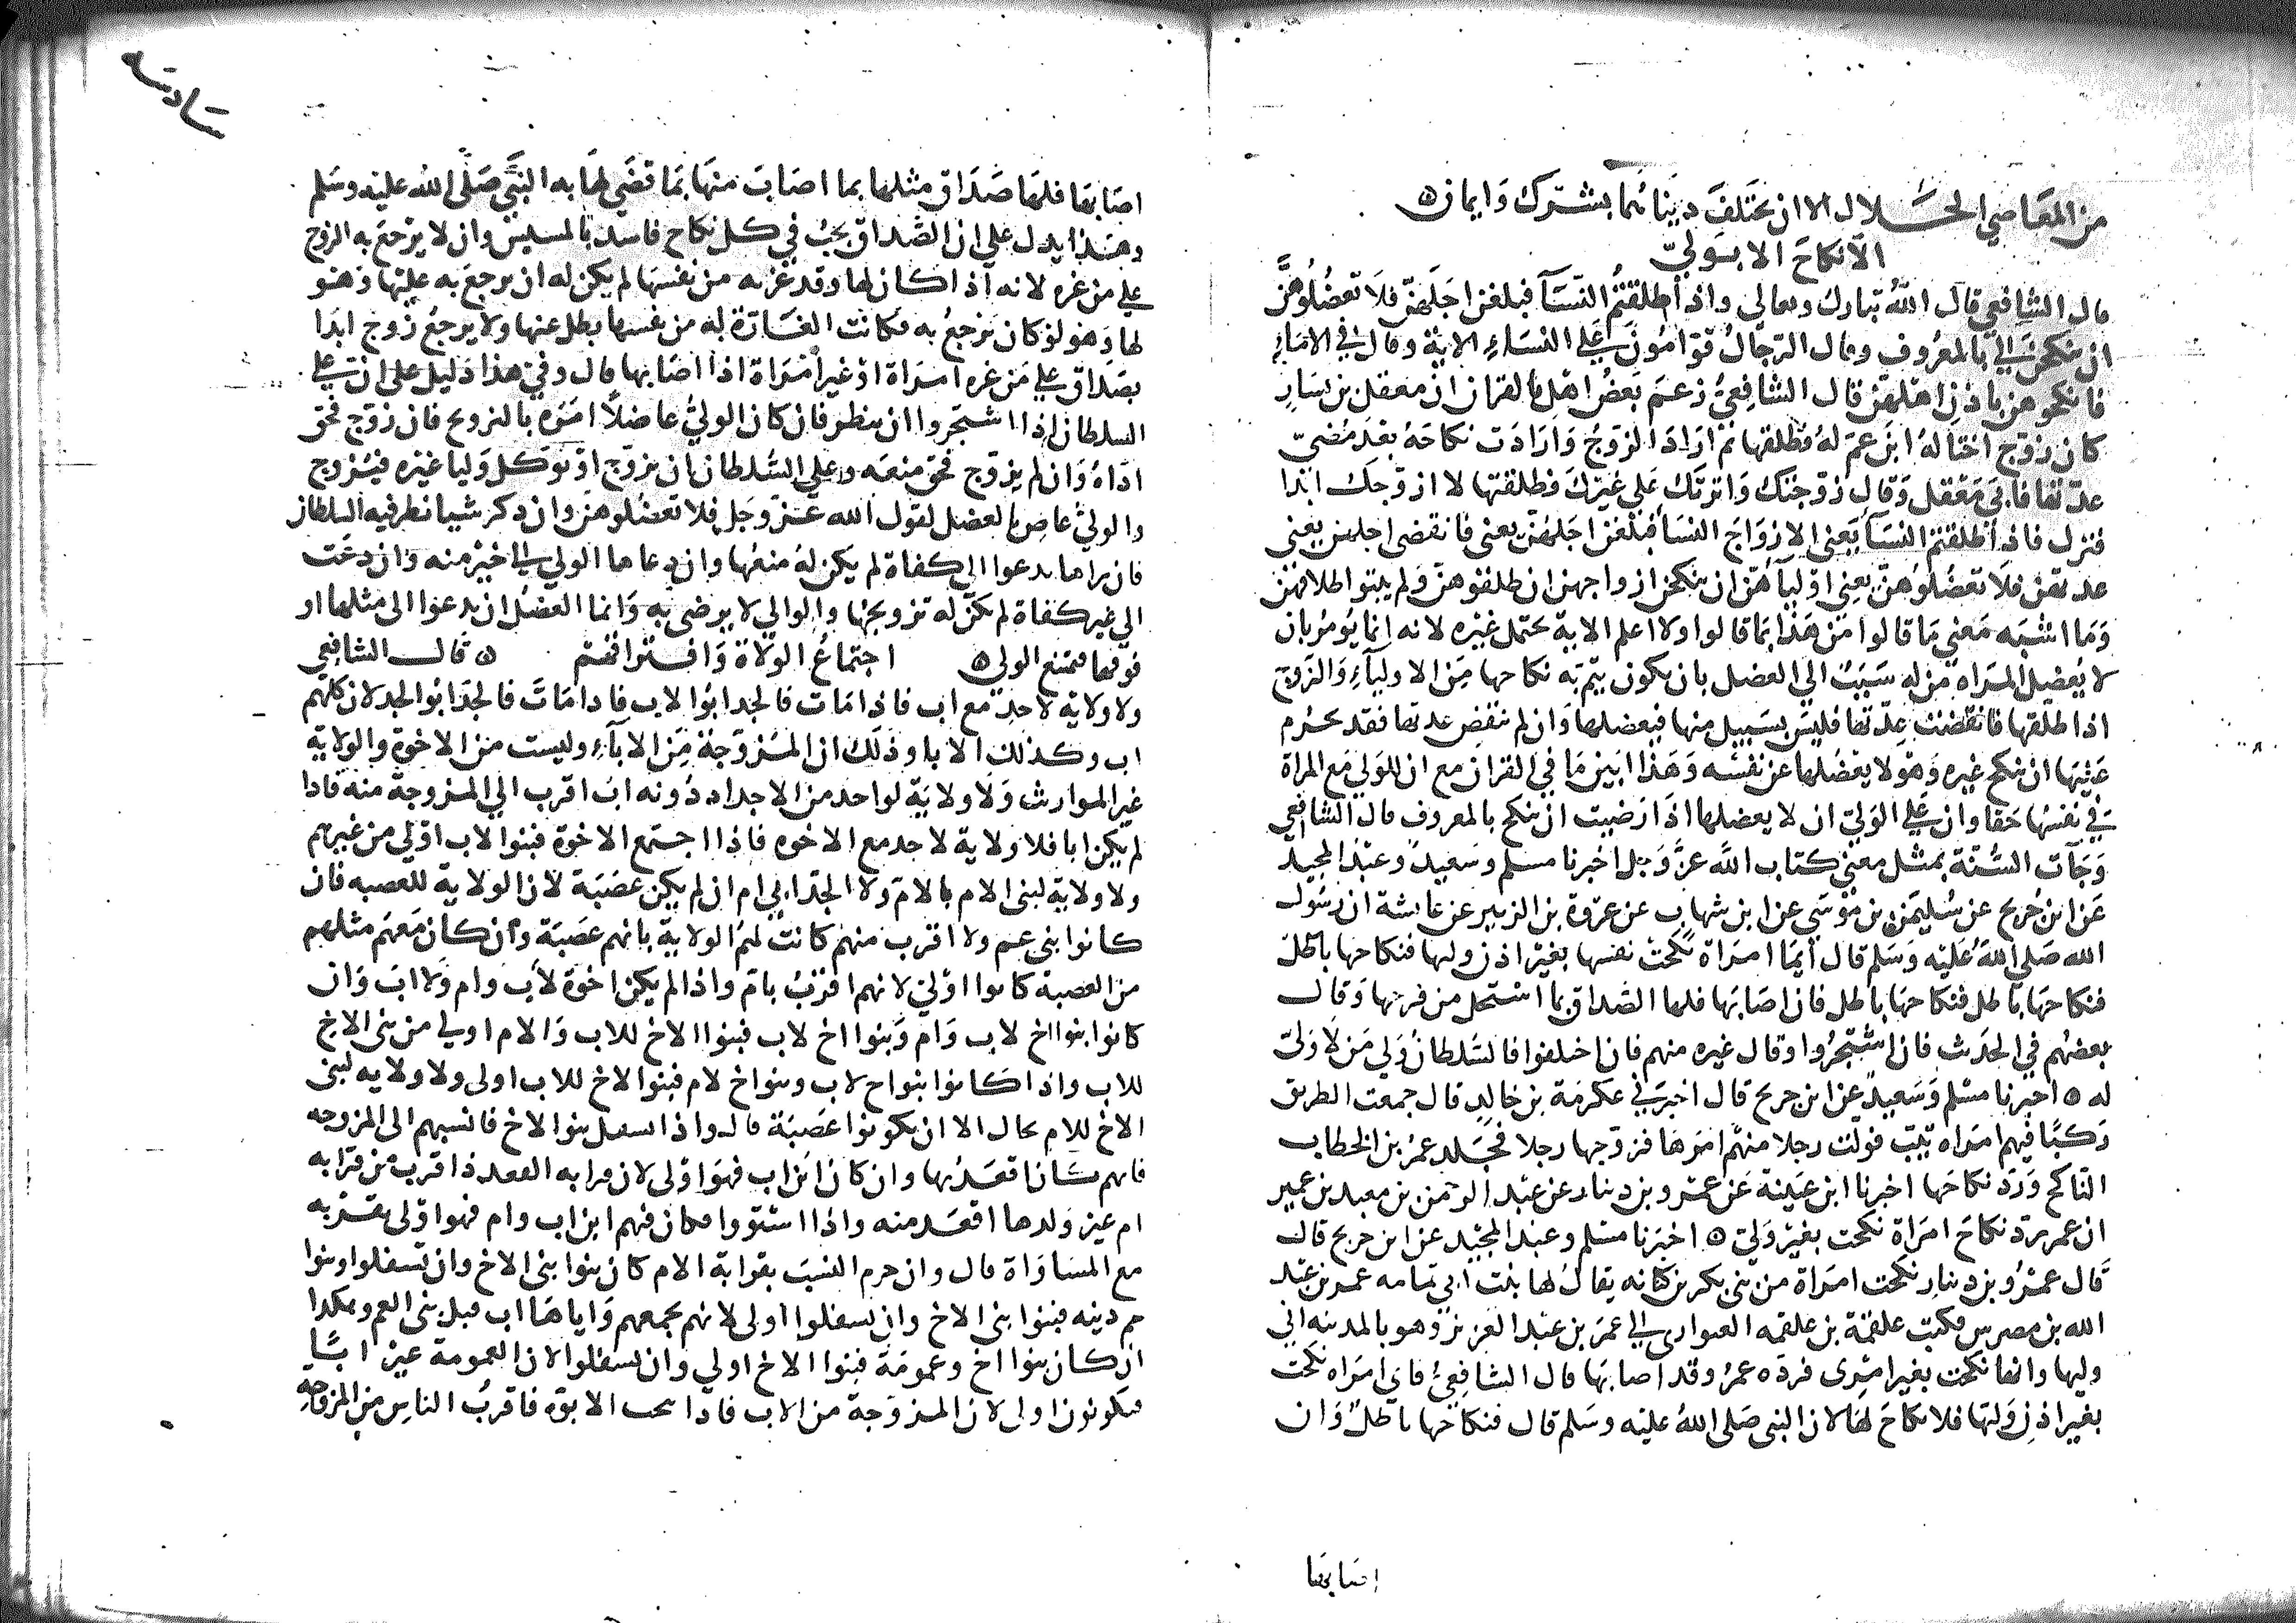 من المعاصي الحلال الا ان يختلف ديناهما بشرك وايمان ۞
لا نكاح الا بولي
قال الشافعي قال الله تبارك وتعالى واذا طلقتم النسآ فبلغن اجلهن فلا تعضلوهن
ان ينكحن الى بالمعروف وقال الرجال قوامون على النساء الاية وقال في الاماء
فانكحوهن باذن اهلهن قال الشافعي زعم بعض اهل بالقران ان معقل بن يسار
كان زوج اختا له ابن عم له فطلقها ثم اراد الزوج وارادت نكاحه بعد مضي
عدتها فابى معقل وقال زوجتك واثرتك على غيرك فطلقتها لا ازوجك ابدا
فنزل فاذا طلقتم النسآ يعنى الازواج النسآ فبلغن اجلهن يعنى فانقضى اجلهن يعني
عدتهن فلا تعضلوهن يعني اوليآهن ان ينكحن ازواجهن ان طلقوهن ولم يبتوا طلاقهن
وما اشبه معنى ما قالوا من هذا بما قالوا ولا اعلم الاية تحتمل غيره لانه انما يومر بان
لا يعضل المراه من له سبب الى العضل بان يكون يتم به نكاحها من الاوليآء والزوج
اذا طلقها فانقضت عدتها فليس بسبيل منها فيعضلها وان لم تنقض عدتها فقد يحرم
عليها ان ينكح غيره وهو لا يعضلها عن نفسه وهذا ابين ما في القران مع ان للولي مع المراة
في نفسها حقا وان على الولي ان لا يعضلها اذا رضيت ان تنكح بالمعروف قال الشافعي
وجآت السنة بمثل معنى كتاب الله عز وجل اخبرنا مسلم وسعيد وعبد المجيد
عن ابن جريج عن سليمن بن موسى عن ابن شهاب عن عروة بن الزبير عن عايشة ان رسول
الله صلى الله عليه وسلم قال ايما امراة نكحت نفسها بغير اذن وليها فنكاحها باطل
فنكاحها باطل فنكاحها باطل فان اصابها فلها الصداق بما استحل من فرجها وقال
بعضهم في الحدث فان اشتجروا وقال غيره منهم فان اختلفوا فالسلطان ولي من لا ولي
له ۞ اخبرنا مسلم وسعيد عن ابن جريج قال اخبرني عكرمة بن خالد قال جمعت الطريق
ركبا فيهم امراه ثيب فولت رجلا منهم امرها فزوجها رجلا فجلد عمر بن الخطاب
الناكح ورد نكاحها اخبرنا ابن عيينة عن عمرو بن دينار عن عبد الرحمن بن معبد بن عمير
ان عمر رد نكاح امراة نكحت بغير ولي ۞ اخبرنا مسلم وعبد المجيد عن ابن جريج قال
قال عمرو بن دينار نكحت امراة من بني بكر بن كنانه يقال لها بنت ابي ثمامه عمر بن عبد
الله بن مضرس فكتب علقمة بن علقمه العتوارى الى عمر بن عبد العزيز وهو بالمدينه اني
وليها وانها نكحت بغير امرى فرده عمر وقد اصابها قال الشافعي فاي امراه نكحت
بغير اذن وليها فلا نكاح لها لان النبي صلى الله عليه وسلم قال فنكاحها باطل وان
اصابها
اصابها فلها صداق مثلها بما اصاب منها بما قضى لها به النبي صلى الله عليه وسلم
وهذا يدل على ان الصداق يجب في كل نكاح فاسد بالمسيس وان لا يرجع به الزوج
على من غره لانه اذا كان لها وقد غرته من نفسها لم يكن له ان يرجع به عليها وهو
لها وهو لو كان يرجع به فكانت الغارة له من نفسها بطل عنها ولا يرجع زوج ابدا
بصداق على من غره امراة او غير امراة اذا اصابها قال وفي هذا دليل على ان على
السلطان اذا اشتجروا ان ينظر فان كان الولي عاضلا امره بالتزويج فان زوج فحق
اداه وان لم يزوج فحق منعه وعلى السلطان ان يزوج او يوكل وليا غيره فيزوج
والولي عاص بالعضل لقول الله عز وجل فلا تعضلوهن وان ذكر شيا نظر فيه السلطان
فان راها تدعوا الى كفاة لم يكن له منعها وان دعاها الولي الى خير منه وان دعت
الى غير كفاة لم يكن له تزويجها والوالي لا يرضى به وانما العضل ان تدعوا الى مثلها او
فوقها فيمتنع الولي ۞ اجتماع الولاة وافتراقهم ۞ قال الشافعي
ولا ولاية لاحد مع اب فاذا مات فالجد ابوا الاب فاذا مات فالجد ابوا الجد لان كلهم
اب وكذلك الابا وذلك ان المزوجة من الابآء وليست من الاخوة والولاية
غير الموارث ولا ولاية لواحد من الاجداد دونه اب اقرب الى المزوجة منه فاذا
لم يكن ابا فلا ولاية لاحد مع الاخوه فاذا اجتمع الاخوة فبنوا الاب اولى من غيرهم
ولا ولاية لبنى الام بالام ولا الجد ابي ام ان لم يكن عصبة لان الولاية للعصبه فان
كانوا بني عم ولا اقرب منهم كانت لهم الولاية بانهم عصبة وان كان معهم مثلهم
من العصبة كانوا اولى لانهم اقرب بام واذا لم يكن اخوة لاب وام ولا اب وان
كانوا بنوا اخ لاب وام وبنوا اخ لاب فبنوا الاخ للاب والام اولى من بني الاخ
للاب واذا كانوا بنوا اخ لاب وبنوا خ لام فبنوا الاخ للاب اولى ولا ولايه لبني
الاخ للام بحال الا ان يكونوا عصبة قال واذا اسفل بنوا الاخ فانسبهم الى المزوجه
فايهم كان اقعد بها وان كان ابن اب فهو اولى لان قرابه القعدد اقرب من قرابه
ام غير ولدها اقعد منه واذا استووا فكان فيهم ابن اب وام فهو اولى بقربه
مع المساواة قال وان حرم النسب بقرابة الام كان بنوا بني الاخ وان تسفلوا وبنوا
عم دنيه فبنوا بني الاخ وان تسفلوا اولى لانهم يجمعهم واياها اب قبل بني العم وهكذا
ان كان بنوا اخ وعمومة فبنوا الاخ اولى وان تسفلوا لان العمومة غير ابا
فيكونون اولى لان المزوجة من الاب فاذا الابوة فاقرب الناس من المزوجه